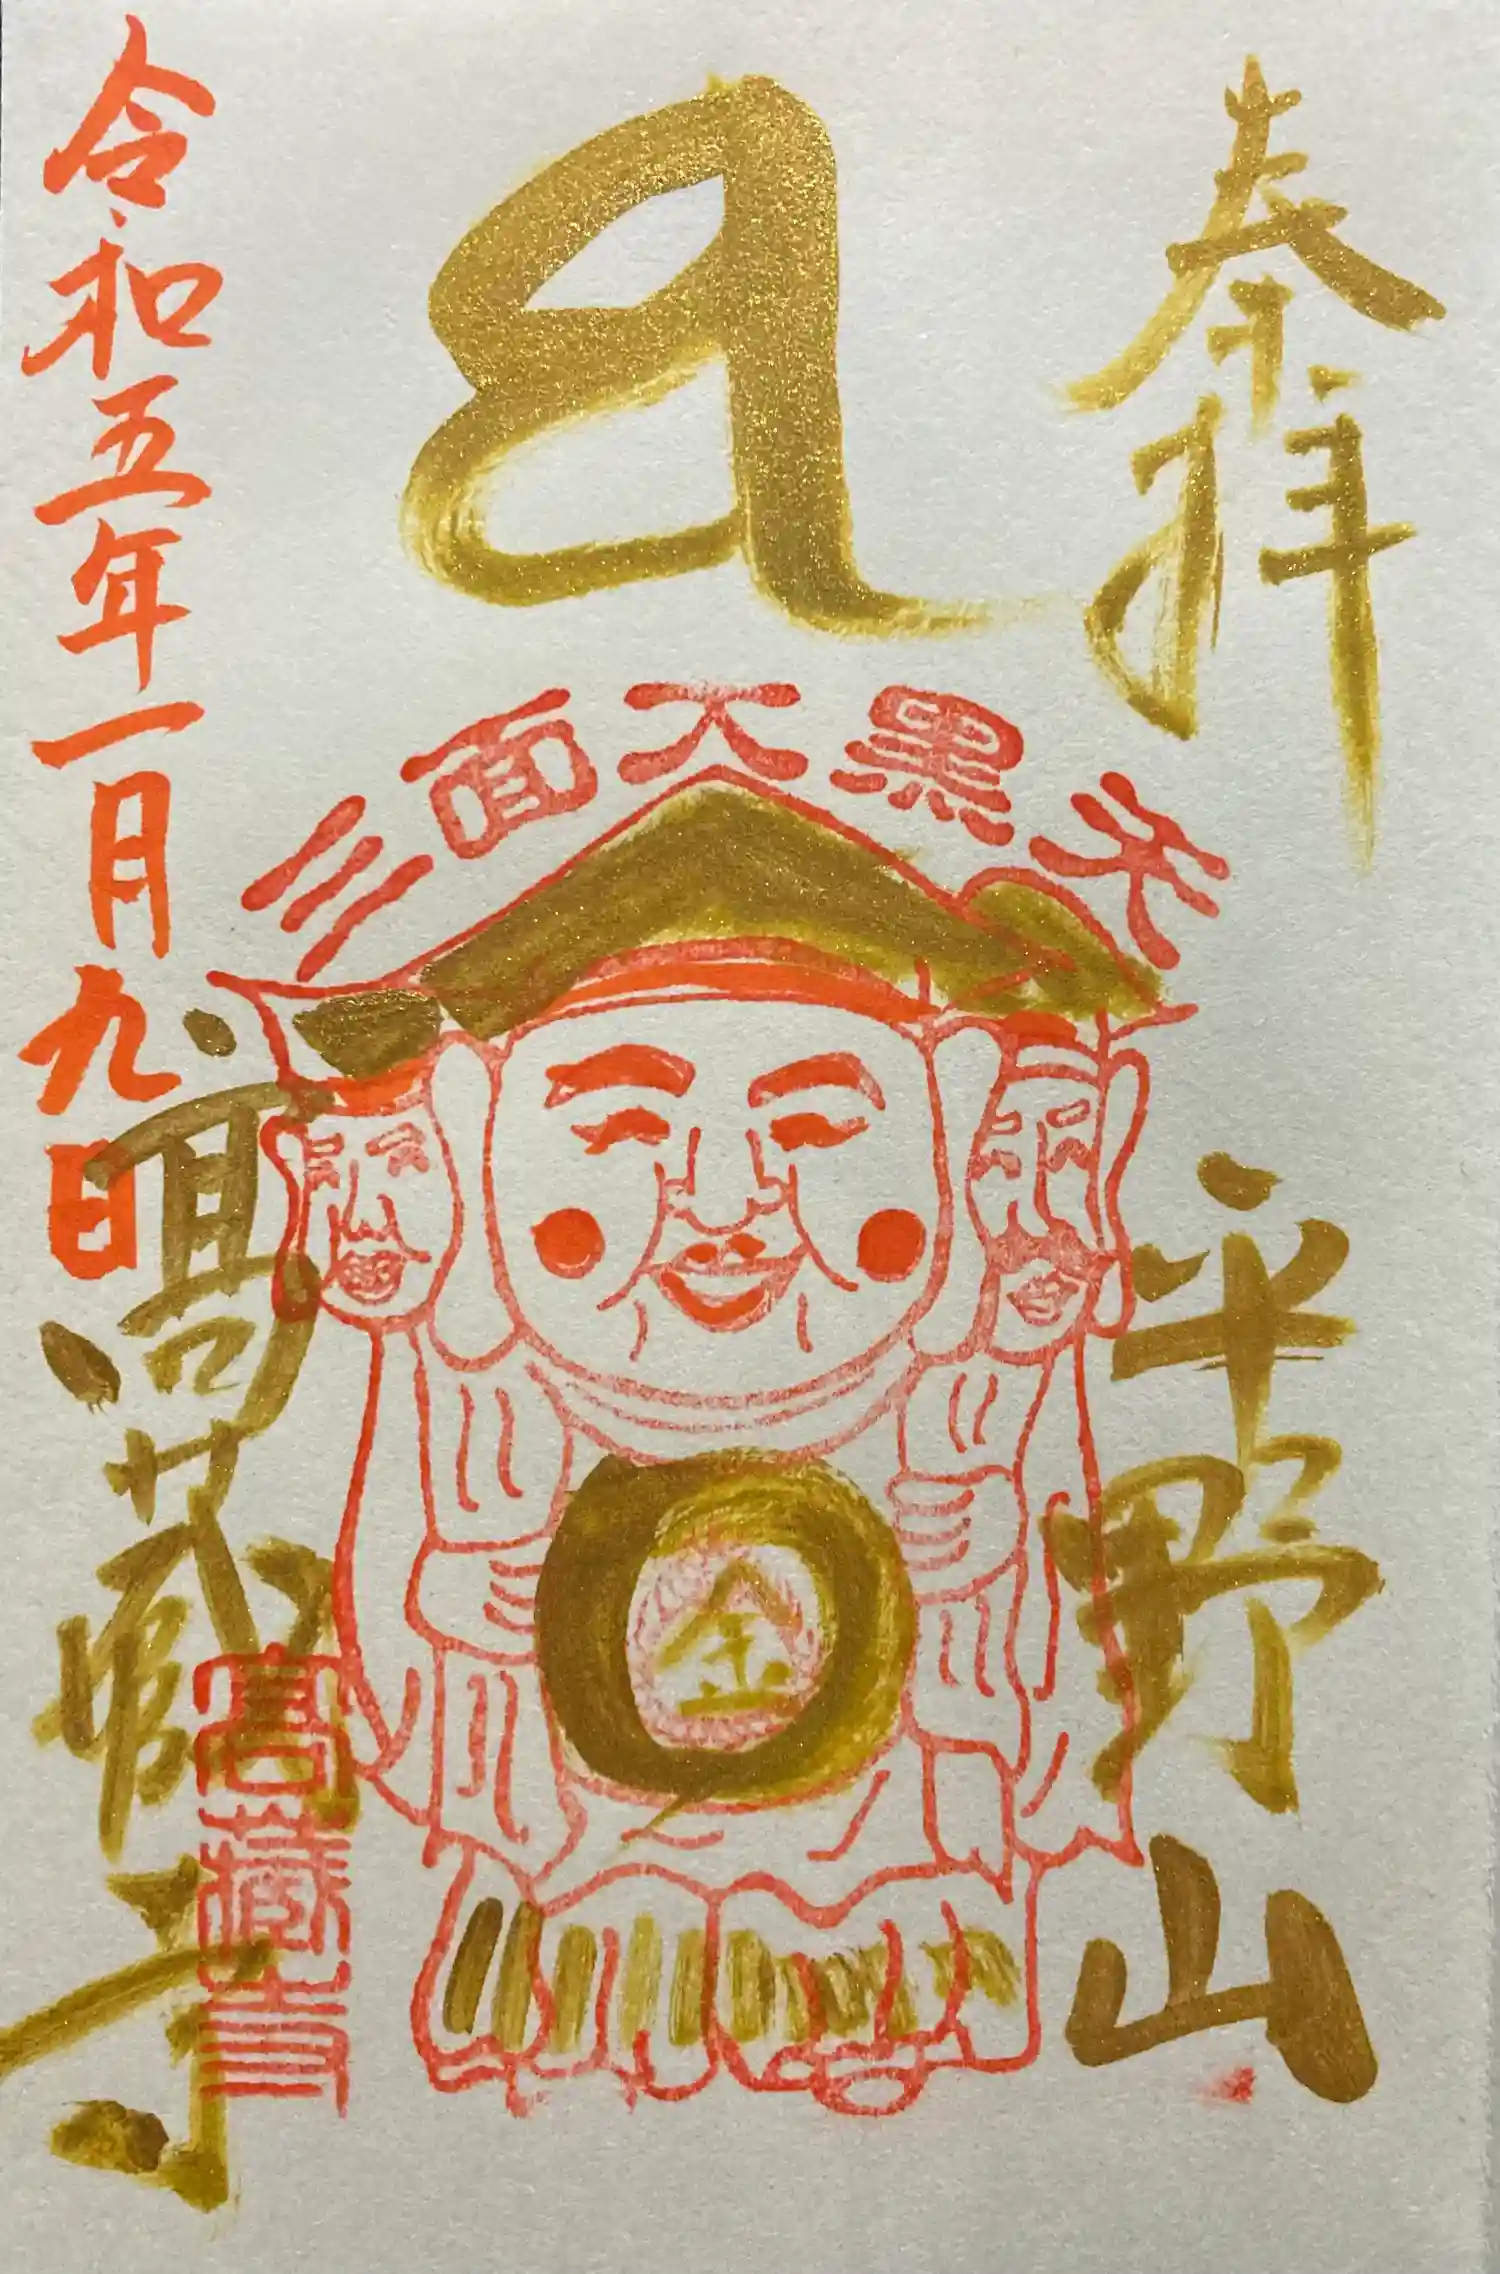 奉拝
平野山
三面大黒天
金
令和五年一月九日
高蔵寺
高蔵寺